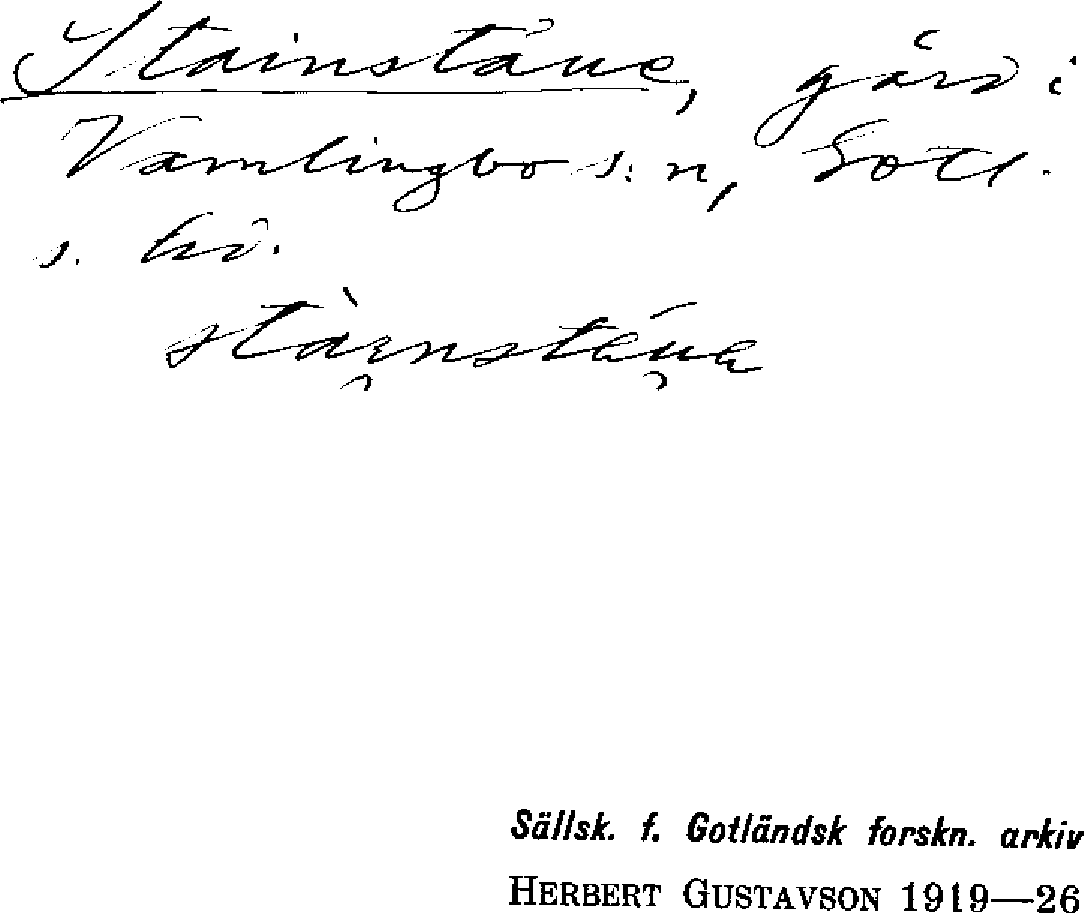 Stainstäue, gård i
Vamlingbo s:n, Gotl.
s. hd.
Sällsk. f. Gotländsk forskn. arkiv
HERBERT GUSTAVSON 1919—26